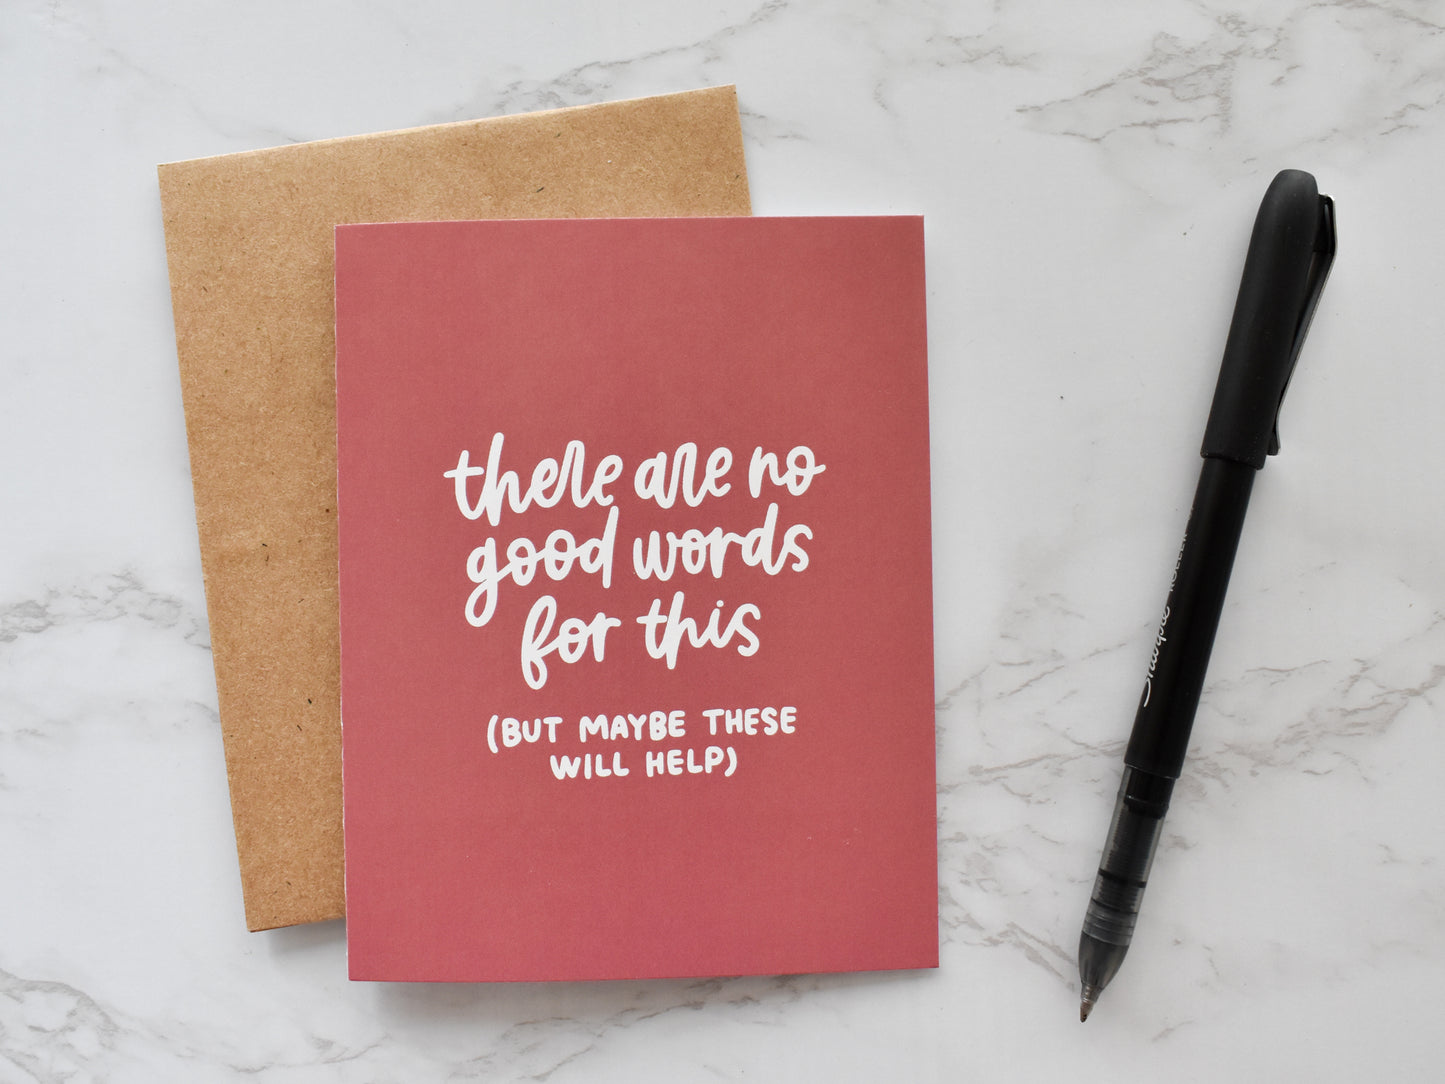 there are no
good words
for this
(BUT MAYBE THESE
WILL HELP)
Sharpie ROLLER